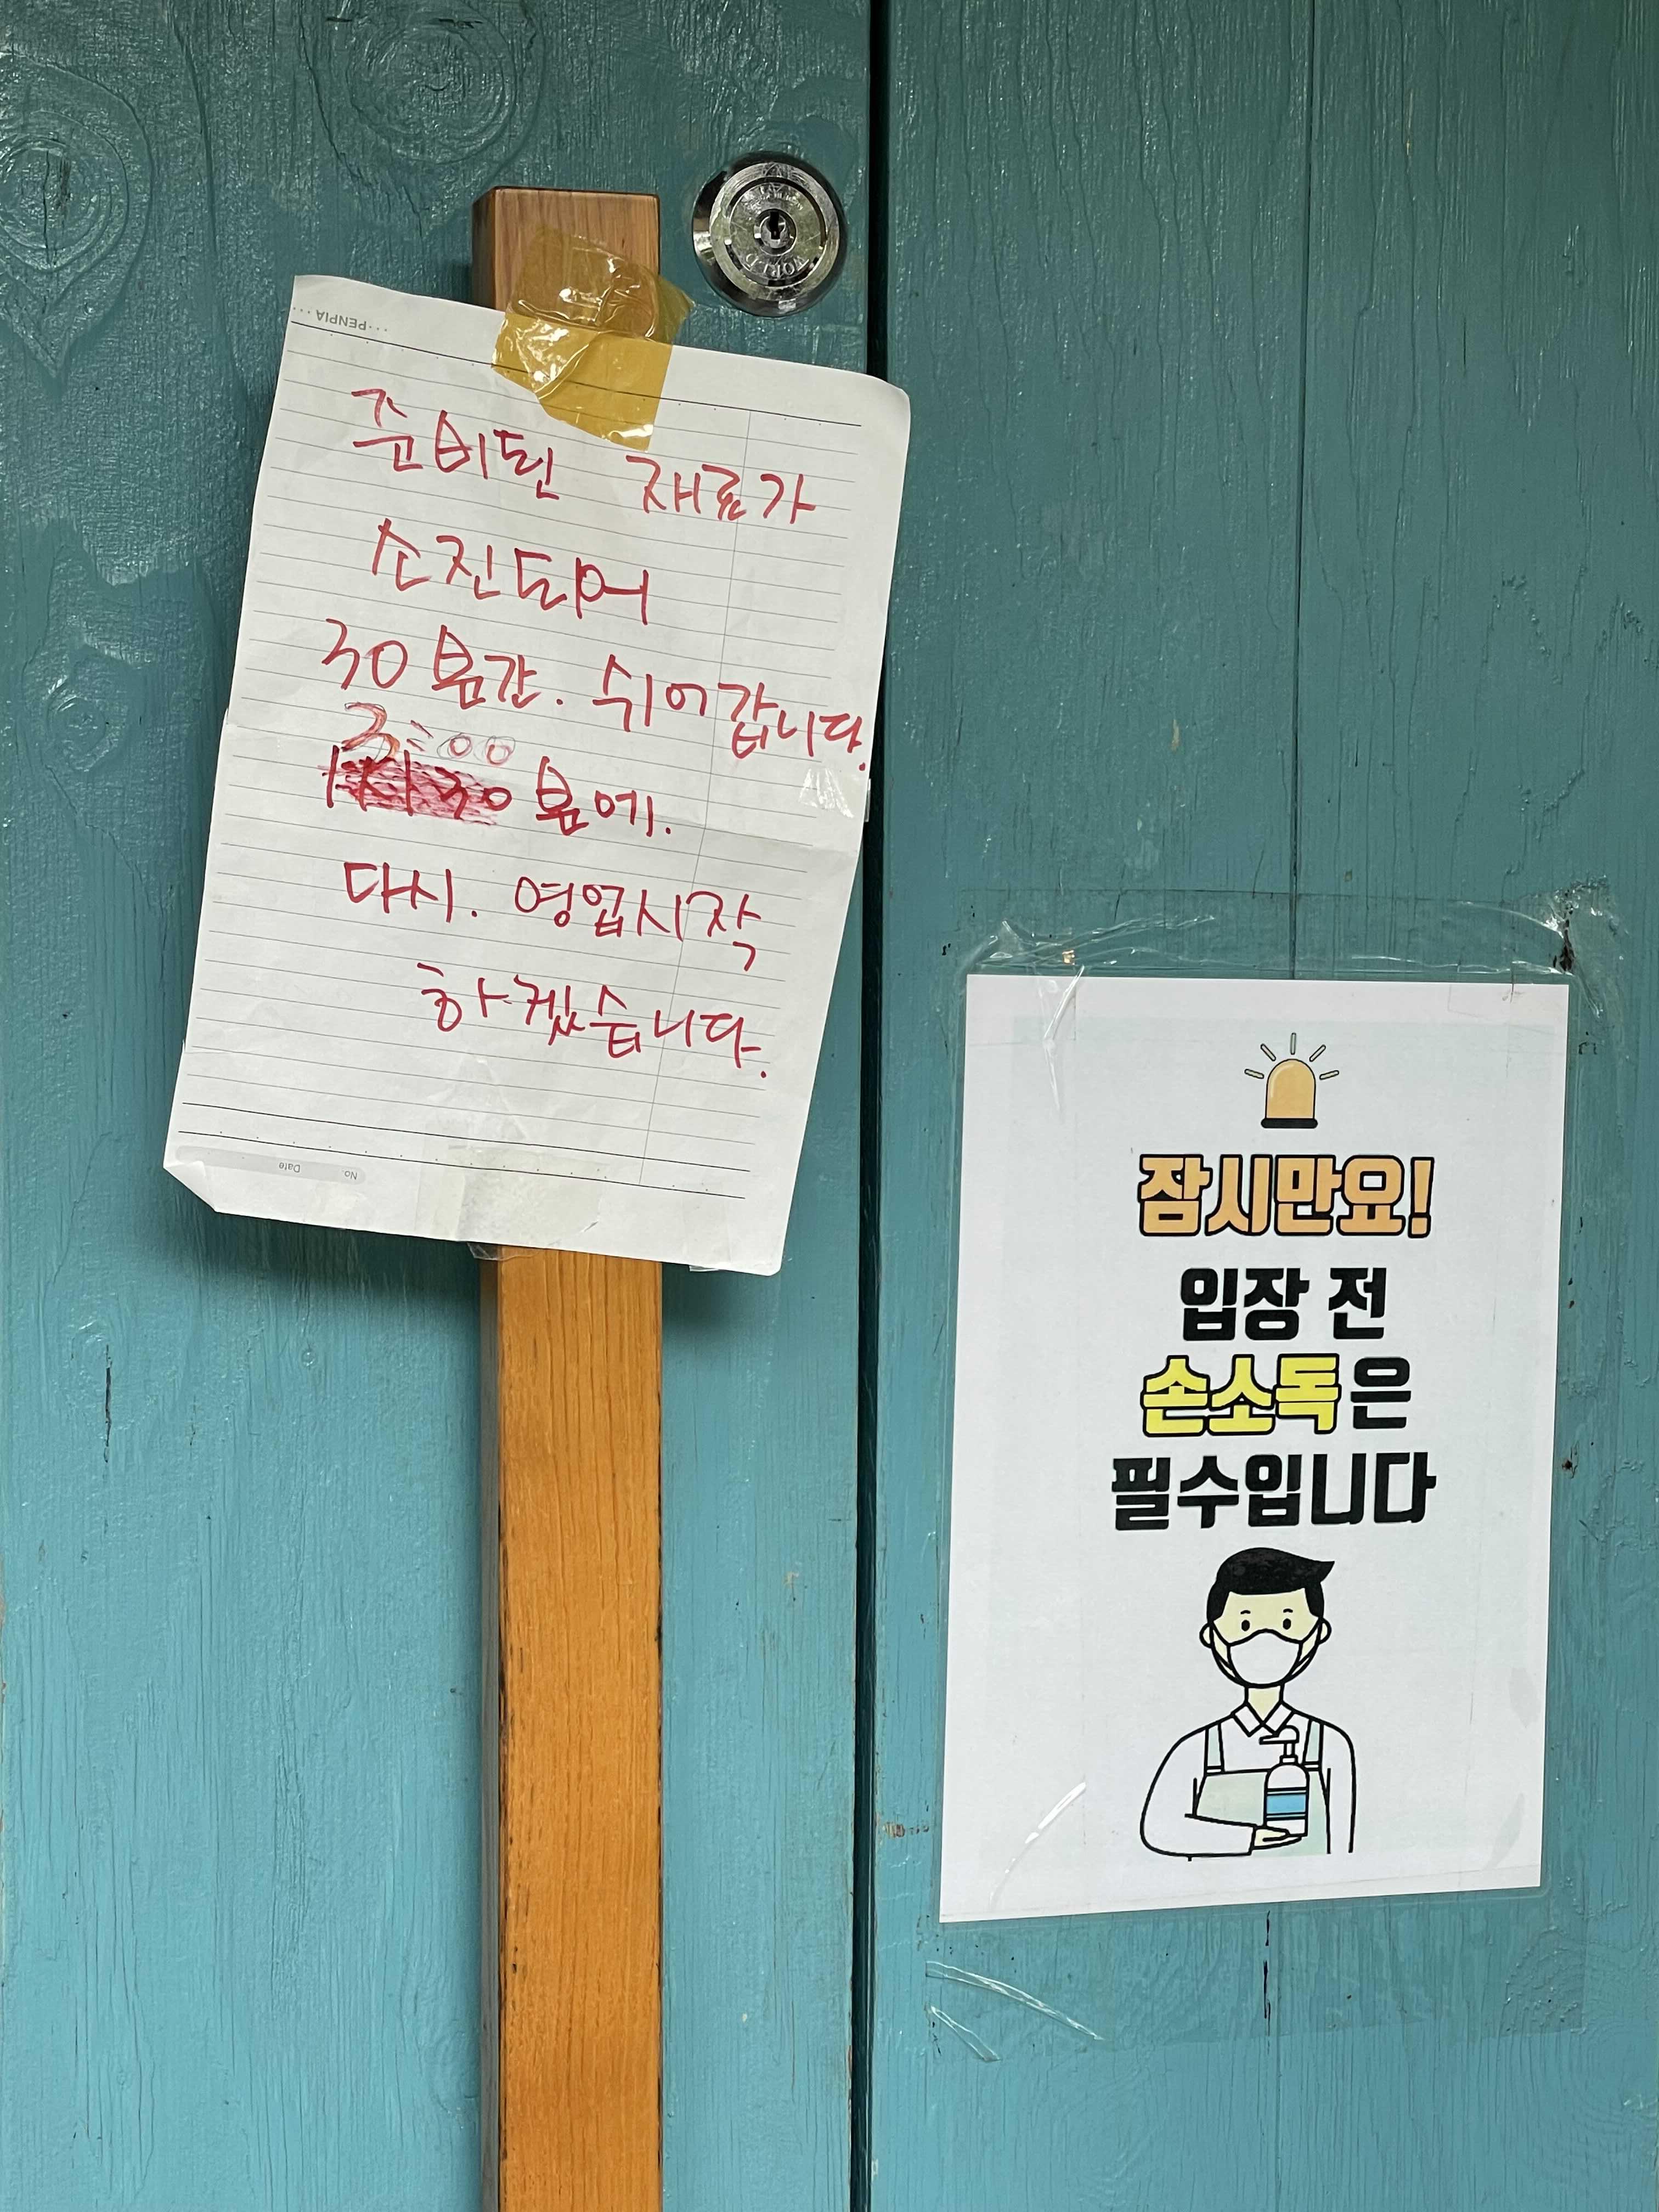 PENPIA
준비된 재료가
소진되어
30분간. 쉬어갑니다.
3:00
분에.
다시. 영업시작
하겠습니다.
No. Date
WORLD
잠시만요!
입장 전
손소독은
필수입니다